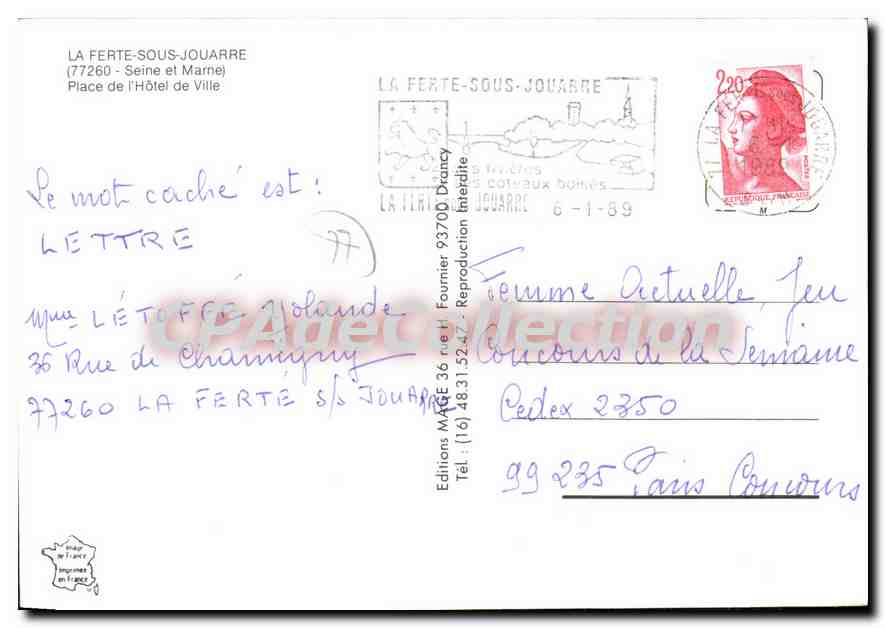 LA FERTE-SOUS-JOUARRE
(77260 - Seine et Marne)
Place de l'Hôtel de Ville
LA FERTE-SOUS-JOUARRE
rivières
coteaux boisés
LA FERTE-SOUS-JOUARRE 6-1-89
2,20
77 LA FERTE SOUS JOUARRE
REPUBLIQUE FRANÇAISE
M
Le mot caché est :
LETTRE
77
Mme LÉTOFFÉ Yolande
36 Rue de Chamigny
77260 LA FERTÉ S/S JOUARRE
Editions MAGE 36 rue H. Fournier 93700 Drancy
Tél. : (16) 48.31.52.47 - Reproduction Interdite
Femme Actuelle, Jeu
Concours de la Semaine
Cedex 2350
99 235 Paris Concours
CPAdeCollection
Image
de France
Imprimée
en France